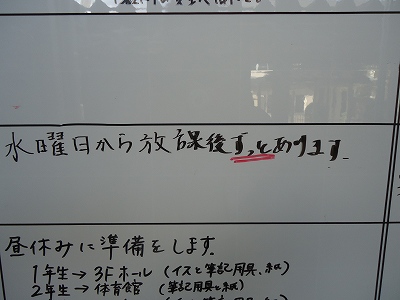 水曜日から放課後ずっとあります.
昼休みに準備をします.
1年生→3Fホール(イスと筆記用具、紙)
2年生→体育館(筆記用具と紙)